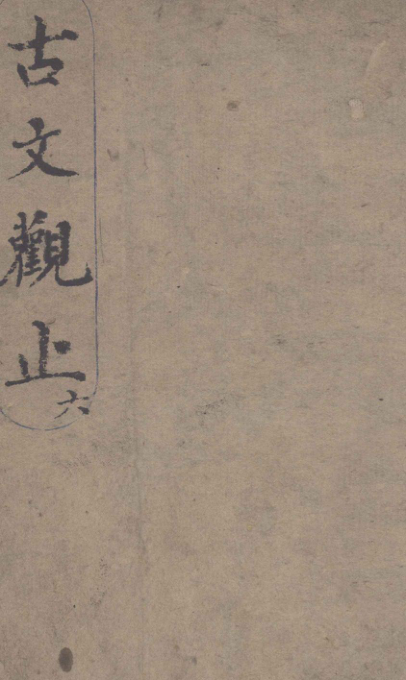 古文觀止
六